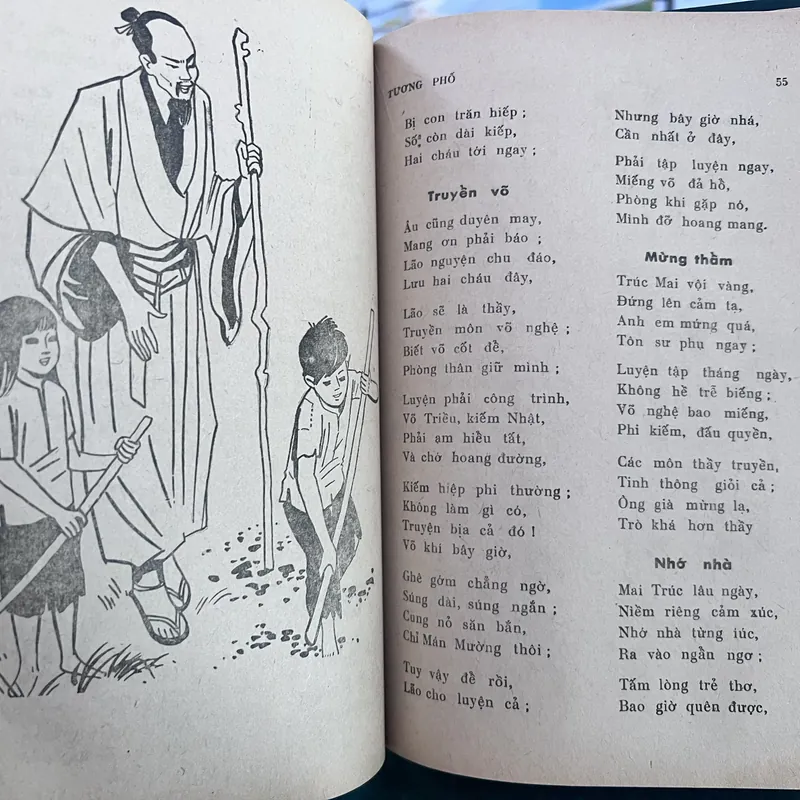 TƯƠNG PHỐ
55
Bị con trăn hiếp ;
Số còn dài kiếp,
Hai cháu tới ngay ;
Truyền võ
Âu cũng duyên may,
Mang ơn phải báo ;
Lão nguyện chu đáo,
Lưu hai cháu đây,
Lão sẽ là thầy,
Truyền môn võ nghệ ;
Biết võ cốt để,
Phòng thân giữ mình ;
Luyện phải công trình,
Võ Triều, kiếm Nhật,
Phải am hiểu tất,
Và chớ hoang đường,
Kiếm hiệp phi thường ;
Không làm gì có,
Truyện bịa cả đó !
Võ khí bây giờ,
Ghê gớm chẳng ngờ,
Súng dài, súng ngắn ;
Cung nỏ săn bắn,
Chỉ Mán Mường thôi ;
Tuy vậy để rồi,
Lão cho luyện cả ;
Nhưng bây giờ nhá,
Cần nhất ở đây,
Phải tập luyện ngay,
Miếng võ đả hổ,
Phòng khi gặp nó,
Mình đỡ hoang mang.
Mừng thầm
Trúc Mai vội vàng,
Đứng lên cảm tạ,
Anh em mừng quá,
Tôn sư phụ ngay ;
Luyện tập tháng ngày,
Không hề trễ biếng ;
Võ nghệ bao miếng,
Phi kiếm, đấu quyền,
Các môn thầy truyền,
Tinh thông giỏi cả ;
Ông già mừng lạ,
Trò khá hơn thầy
Nhớ nhà
Mai Trúc lâu ngày,
Niềm riêng cảm xúc,
Nhớ nhà từng lúc,
Ra vào ngẩn ngơ ;
Tấm lòng trẻ thơ,
Bao giờ quên được,